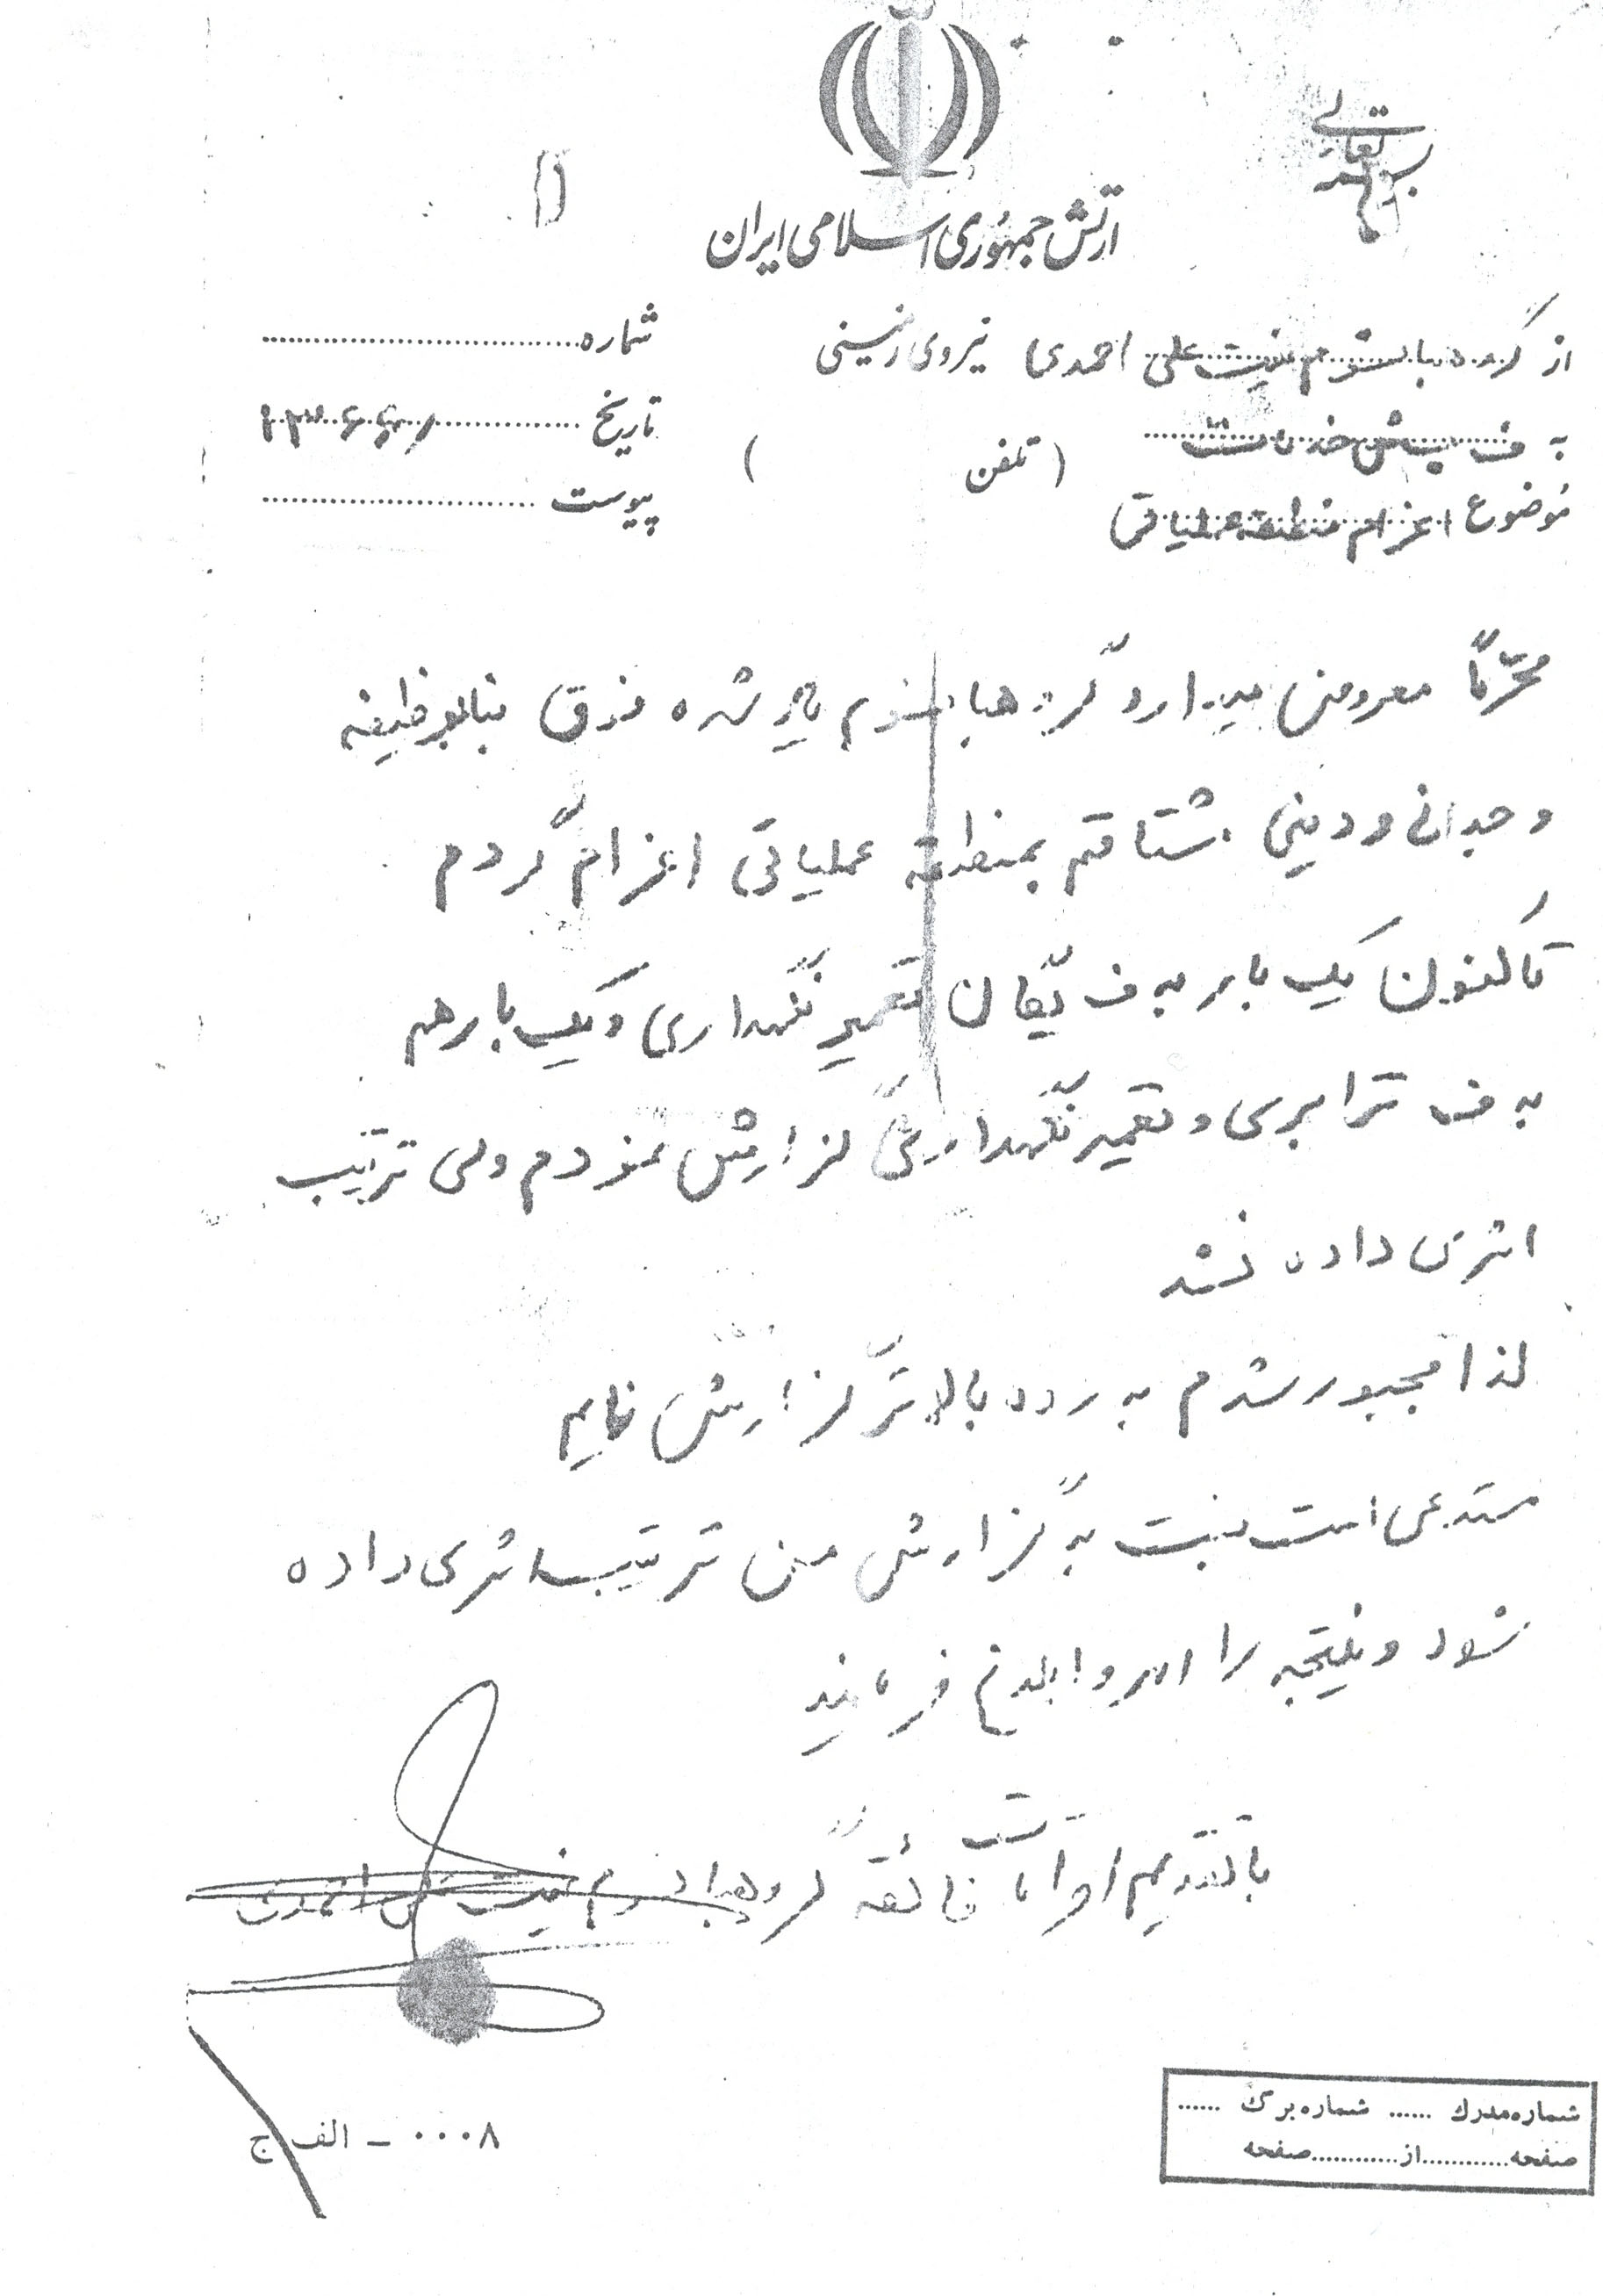 بسمه تعالی
ارتش جمهوری اسلامی ایران
از گروهبانسوم غیبت علی احمدی نیروی زمینی
شماره
به ف پیش خدمات
(تلفن )
تاریخ
موضوع اعزام منطقه عملیاتی
پیوست
محترماً معروض میدارد گروهبانسوم یاد شده فوق بنابوظیفه
وجدانی و دینی بمنطقه عملیاتی اعزام گردم
تاکنون یک بار به ف یگان تعمیر نگهداری و یک بار هم
به ف ترابری و تعمیر نگهداری گزارش نمودم ولی ترتیب
اثری داده نشد
لذا مجبور شدم به رده بالاتر گزارش نمایم
مستدعی است نسبت به گزارش من ترتیب اثری داده
شود و نتیجه را امر و ابلاغ فرمایند
با تقدیم احترامات فائقه گروهبانسوم غیبت علی احمدی
۰۰۰۸ – الف ج
شماره مدرک ...... شماره برگ ......
صفحه ............ از ............ صفحه